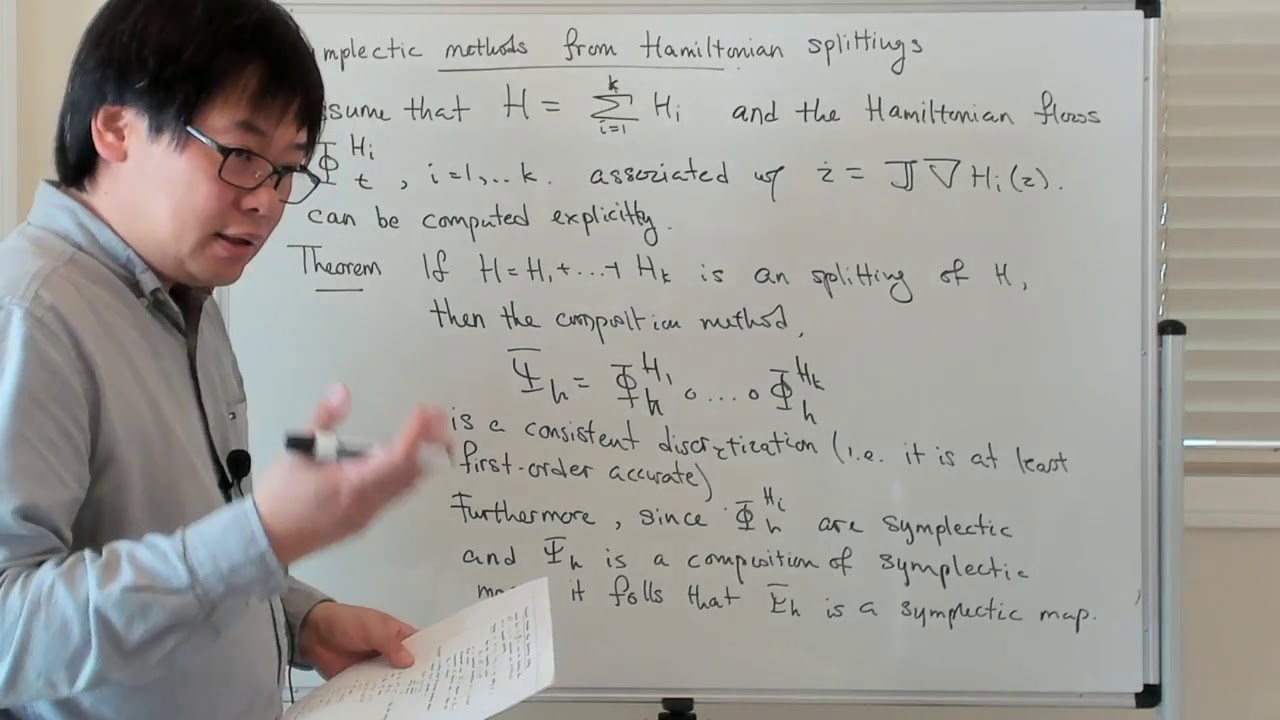 mplectic methods from Hamiltonian splittings
sume that H = \sum_{i=1}^{k} H_i and the Hamiltonian flows
Φ_t^{H_i}, i=1,..k. associated w/ ż = J∇H_i(z).
can be computed explicitly.
Theorem If H=H_1+...+H_k is an splitting of H,
then the composition method,
Ψ_h = Φ_h^{H_1} ∘ ... ∘ Φ_h^{H_k}
is a consistent discretization (i.e. it is at least
first-order accurate)
Furthermore, since Φ_h^{H_i} are symplectic
and Ψ_h is a composition of symplectic
it folls that Ψ_h is a symplectic map.